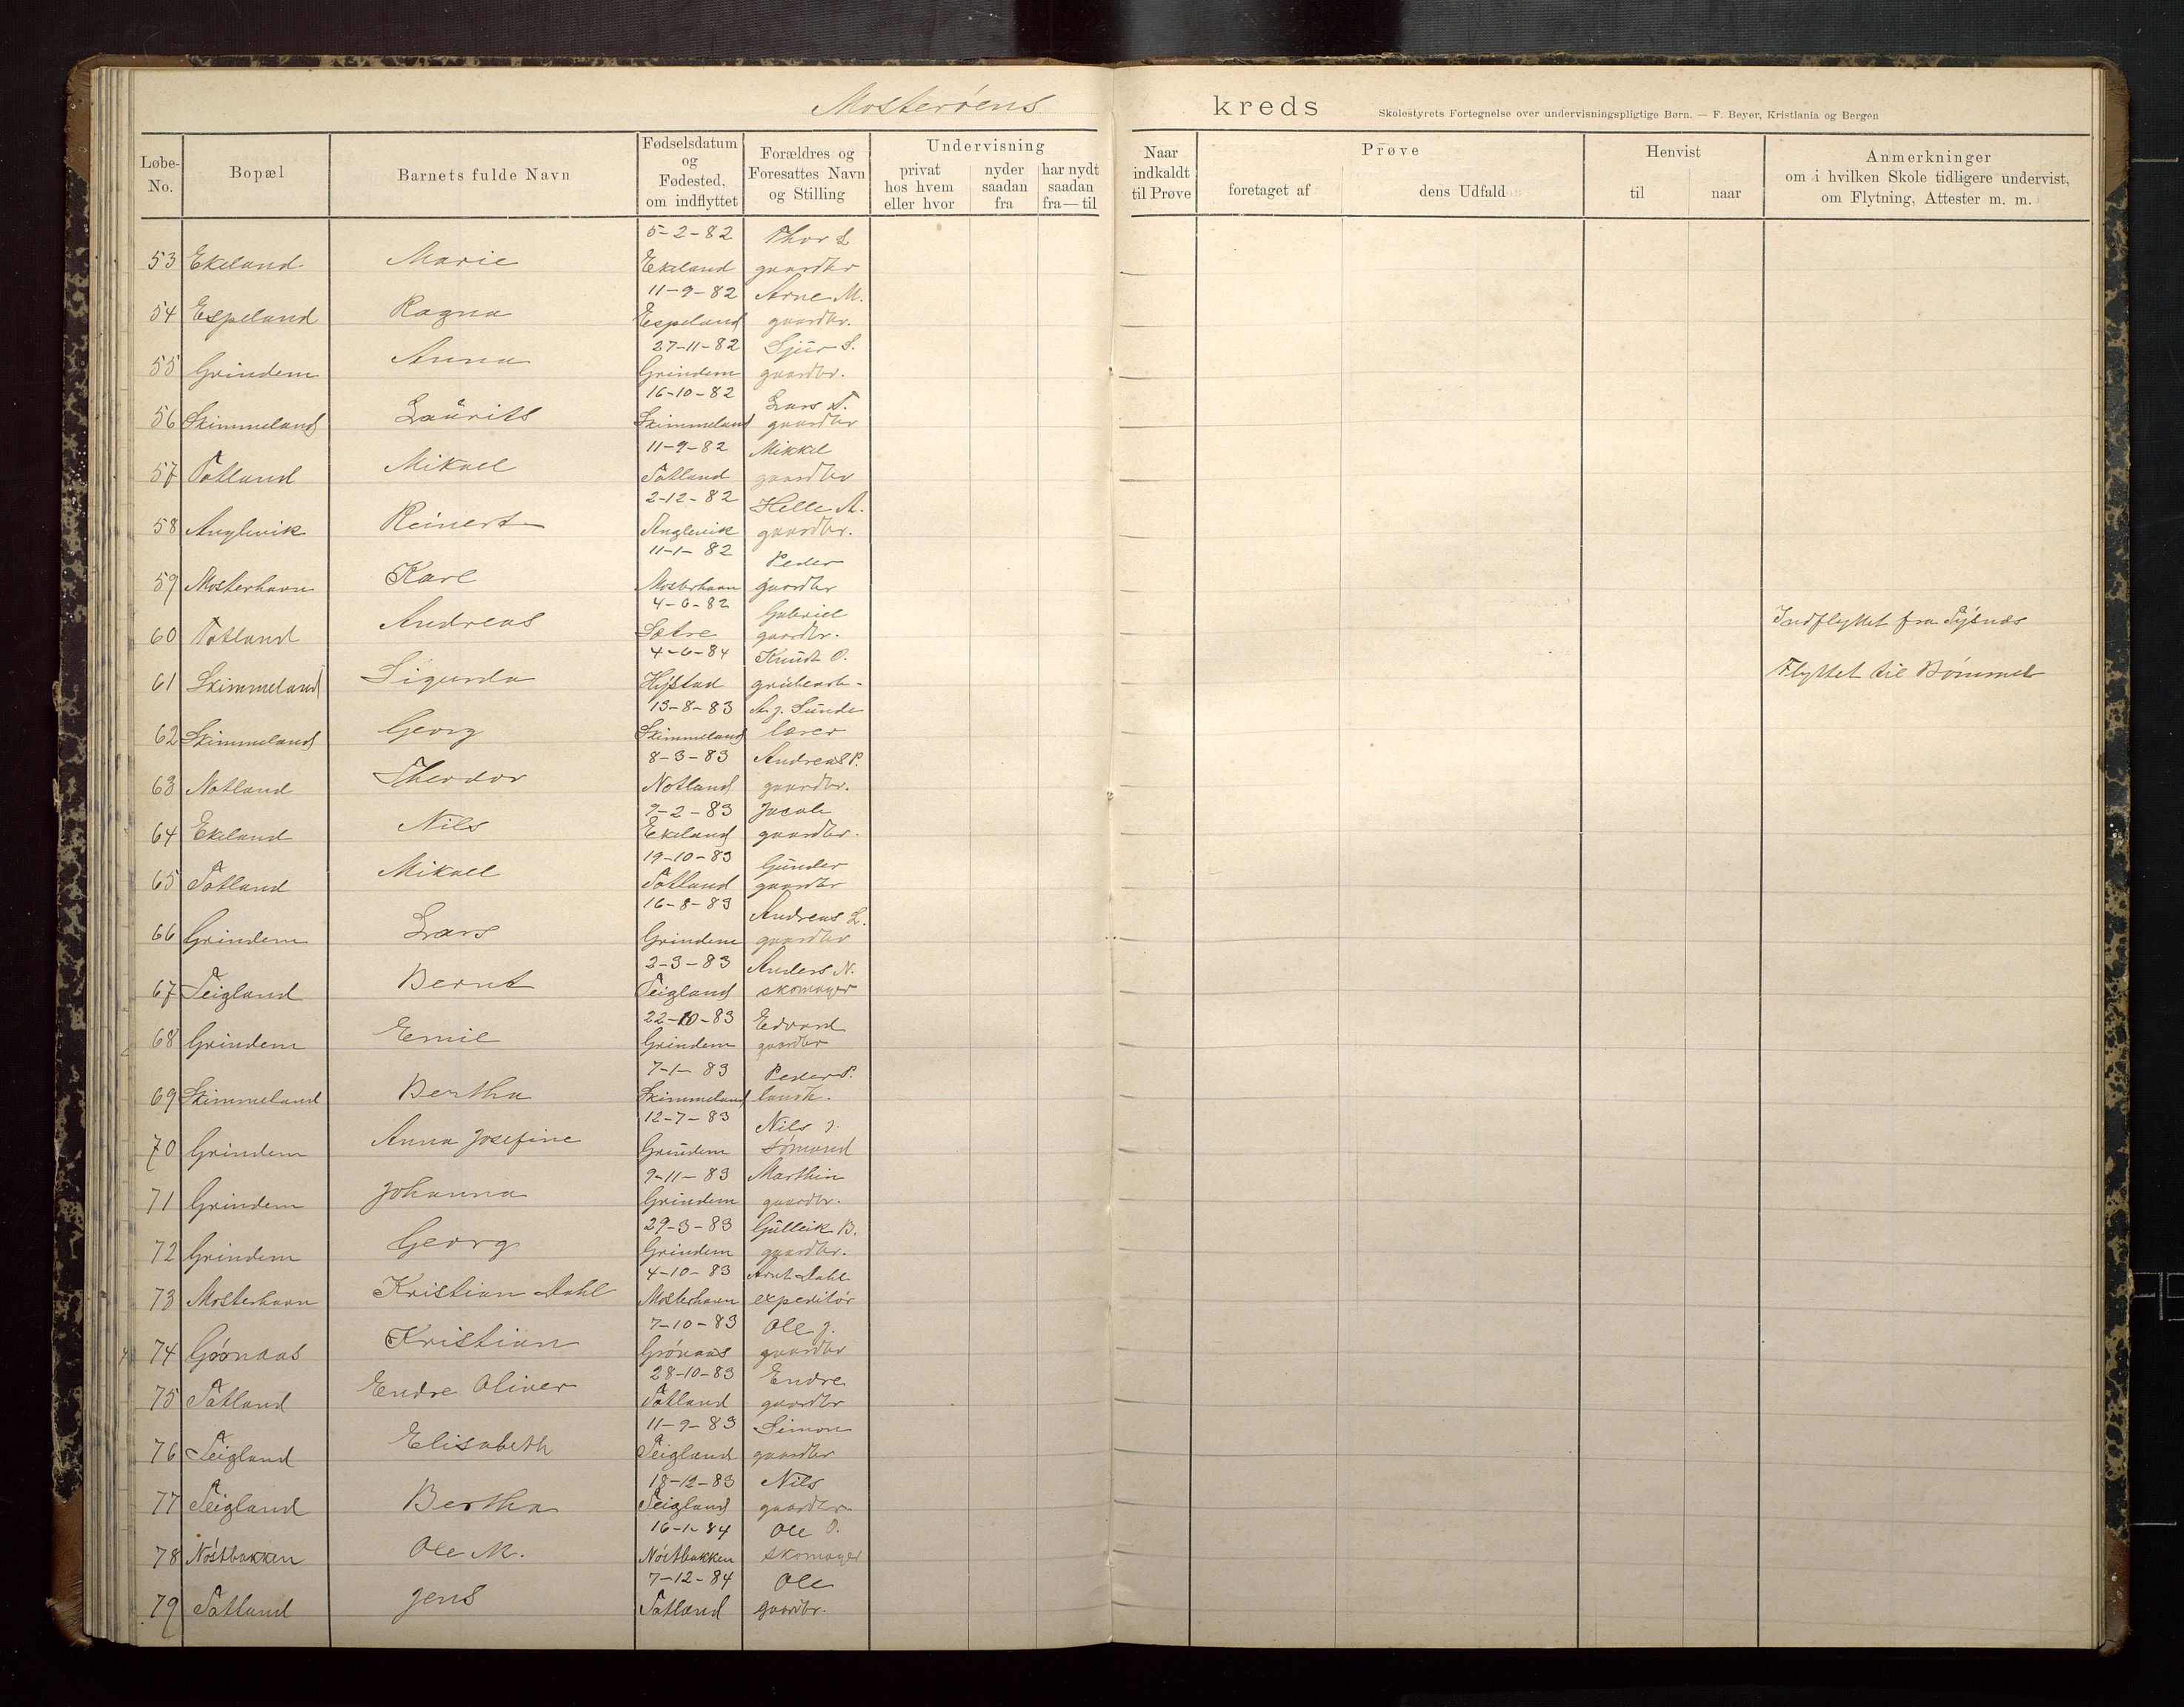 Mosterøens kreds
Skolestyrets Fortegnelse over undervisningspligtige Børn. — F. Beyer, Kristiania og Bergen
Løbe-No. Bopæl Barnets fulde Navn Fødselsdatum og Fødested, om indflyttet Forældres og Foresattes Navn og Stilling Undervisning privat hos hvem eller hvor nyder saadan fra har nydt saadan fra—til Naar indkaldt til Prøve Prøve foretaget af dens Udfald Henvist til naar Anmerkninger om i hvilken Skole tidligere undervist, om Flytning, Attester m. m.
5-2-82 Thor L
53 Ekeland Marie Ekeland gaardbr
11-9-82 Arne M.
54 Espeland Ragna Espeland gaardbr.
27-11-82 Sjur S.
55 Grindem Anna Grindem gaardbr.
16-10-82 Lars T.
56 Skimmeland Laurits Skimmeland gaardbr
11-9-82 Mikkel
57 Totland Mikael Totland gaardbr
2-12-82 Helle A.
58 Anglevik Reinert Anglevik gaardbr.
11-1-82 Peder
59 Mosterhavn Karl Mosterhavn gaardbr
4-6-82 Gabriel
60 Totland Andreas Sætre gaardbr. Indflyttet fra Tysnæs
4-6-84 Knudt O.
61 Skimmeland Sigurda grubearb. Flyttet til Bømmel
13-8-83 A. J. Sunde
62 Skimmeland Georg Skimmeland lærer
8-3-83 Andreas P.
63 Notland Theodor Notland gaardbr.
9-2-83 Jacob
64 Ekeland Nils Ekeland gaardbr.
19-10-83 Gunder
65 Totland Mikael Totland gaardbr
16-8-83 Andreas L.
66 Grindem Lars Grindem gaardbr
2-3-83 Anders N.
67 Teigland Bernt Teigland skomager
22-10-83 Edvard
68 Grindem Emil Grindem gaardbr
7-1-83 Peder P.
69 Skimmeland Bertha Skimmeland landh.
12-7-83 Nils J.
70 Grindem Anna Josefine Grindem sømand
9-11-83 Marthin
71 Grindem Johanna Grindem gaardbr.
29-3-83 Gulleik B.
72 Grindem Georg Grindem gaardbr.
4-10-83 Arnt Dahl
73 Mosterhavn Kristian Dahl Mosterhavn expeditør
7-10-83 Ole J.
74 Grønaas Kristian Grønaas gaardbr
28-10-83 Endre
75 Totland Endre Oliver Totland gaardbr
11-9-83 Simon
76 Teigland Elisabeth Teigland gaardbr
18-12-83 Nils
77 Teigland Bertha Teigland gaardbr
16-1-84 Ole O.
78 Nøstbakken Ole M. Nøstbakken skomager
7-12-84 Ole
79 Totland Jens Totland gaardbr.